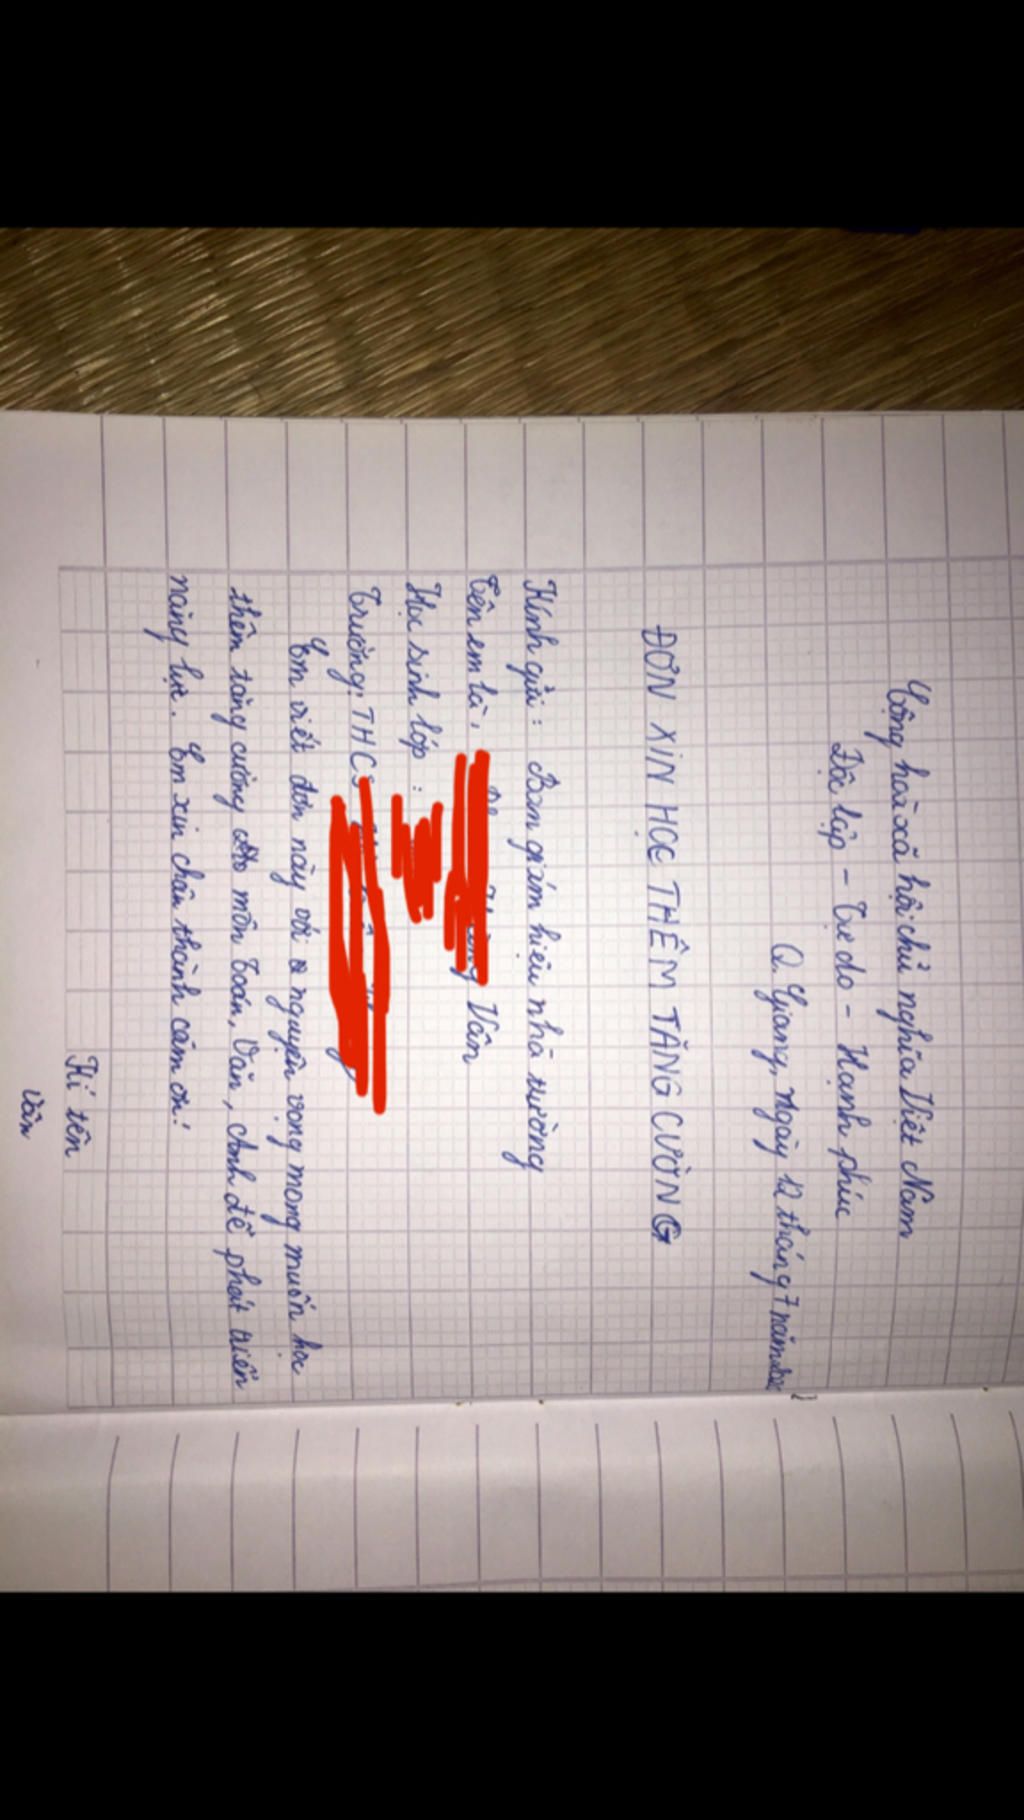 Cộng hoà xã hội chủ nghĩa Việt Nam
Độc lập - Tự do - Hạnh phúc
Q. Giang, ngày 12 tháng 7 năm
ĐƠN XIN HỌC THÊM TĂNG CƯỜNG
Kính gửi: Ban giám hiệu nhà trường
Tên em là: Vân
Học sinh lớp:
Trường: THCS
Em viết đơn này với nguyện vọng mong muốn học
thêm tăng cường môn Toán, Văn, Anh để phát triển
năng lực. Em xin chân thành cảm ơn!
Kí tên
Vân